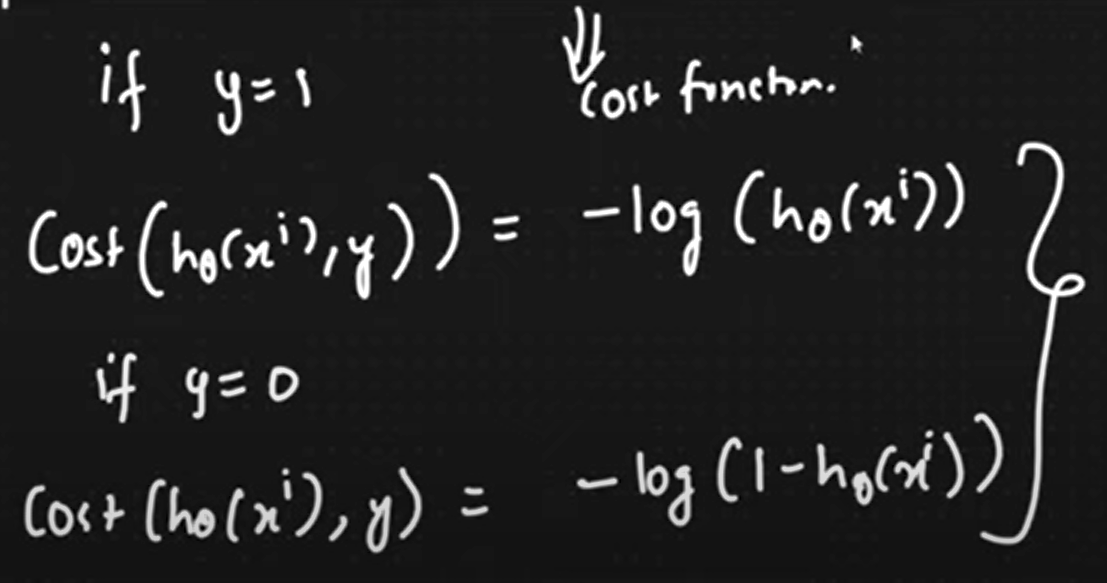 if y=1
Cost function.
Cost(hθ(xⁱ), y)) = -log (hθ(xⁱ))
if y=0
Cost (hθ(xⁱ), y) = -log (1-hθ(xⁱ))